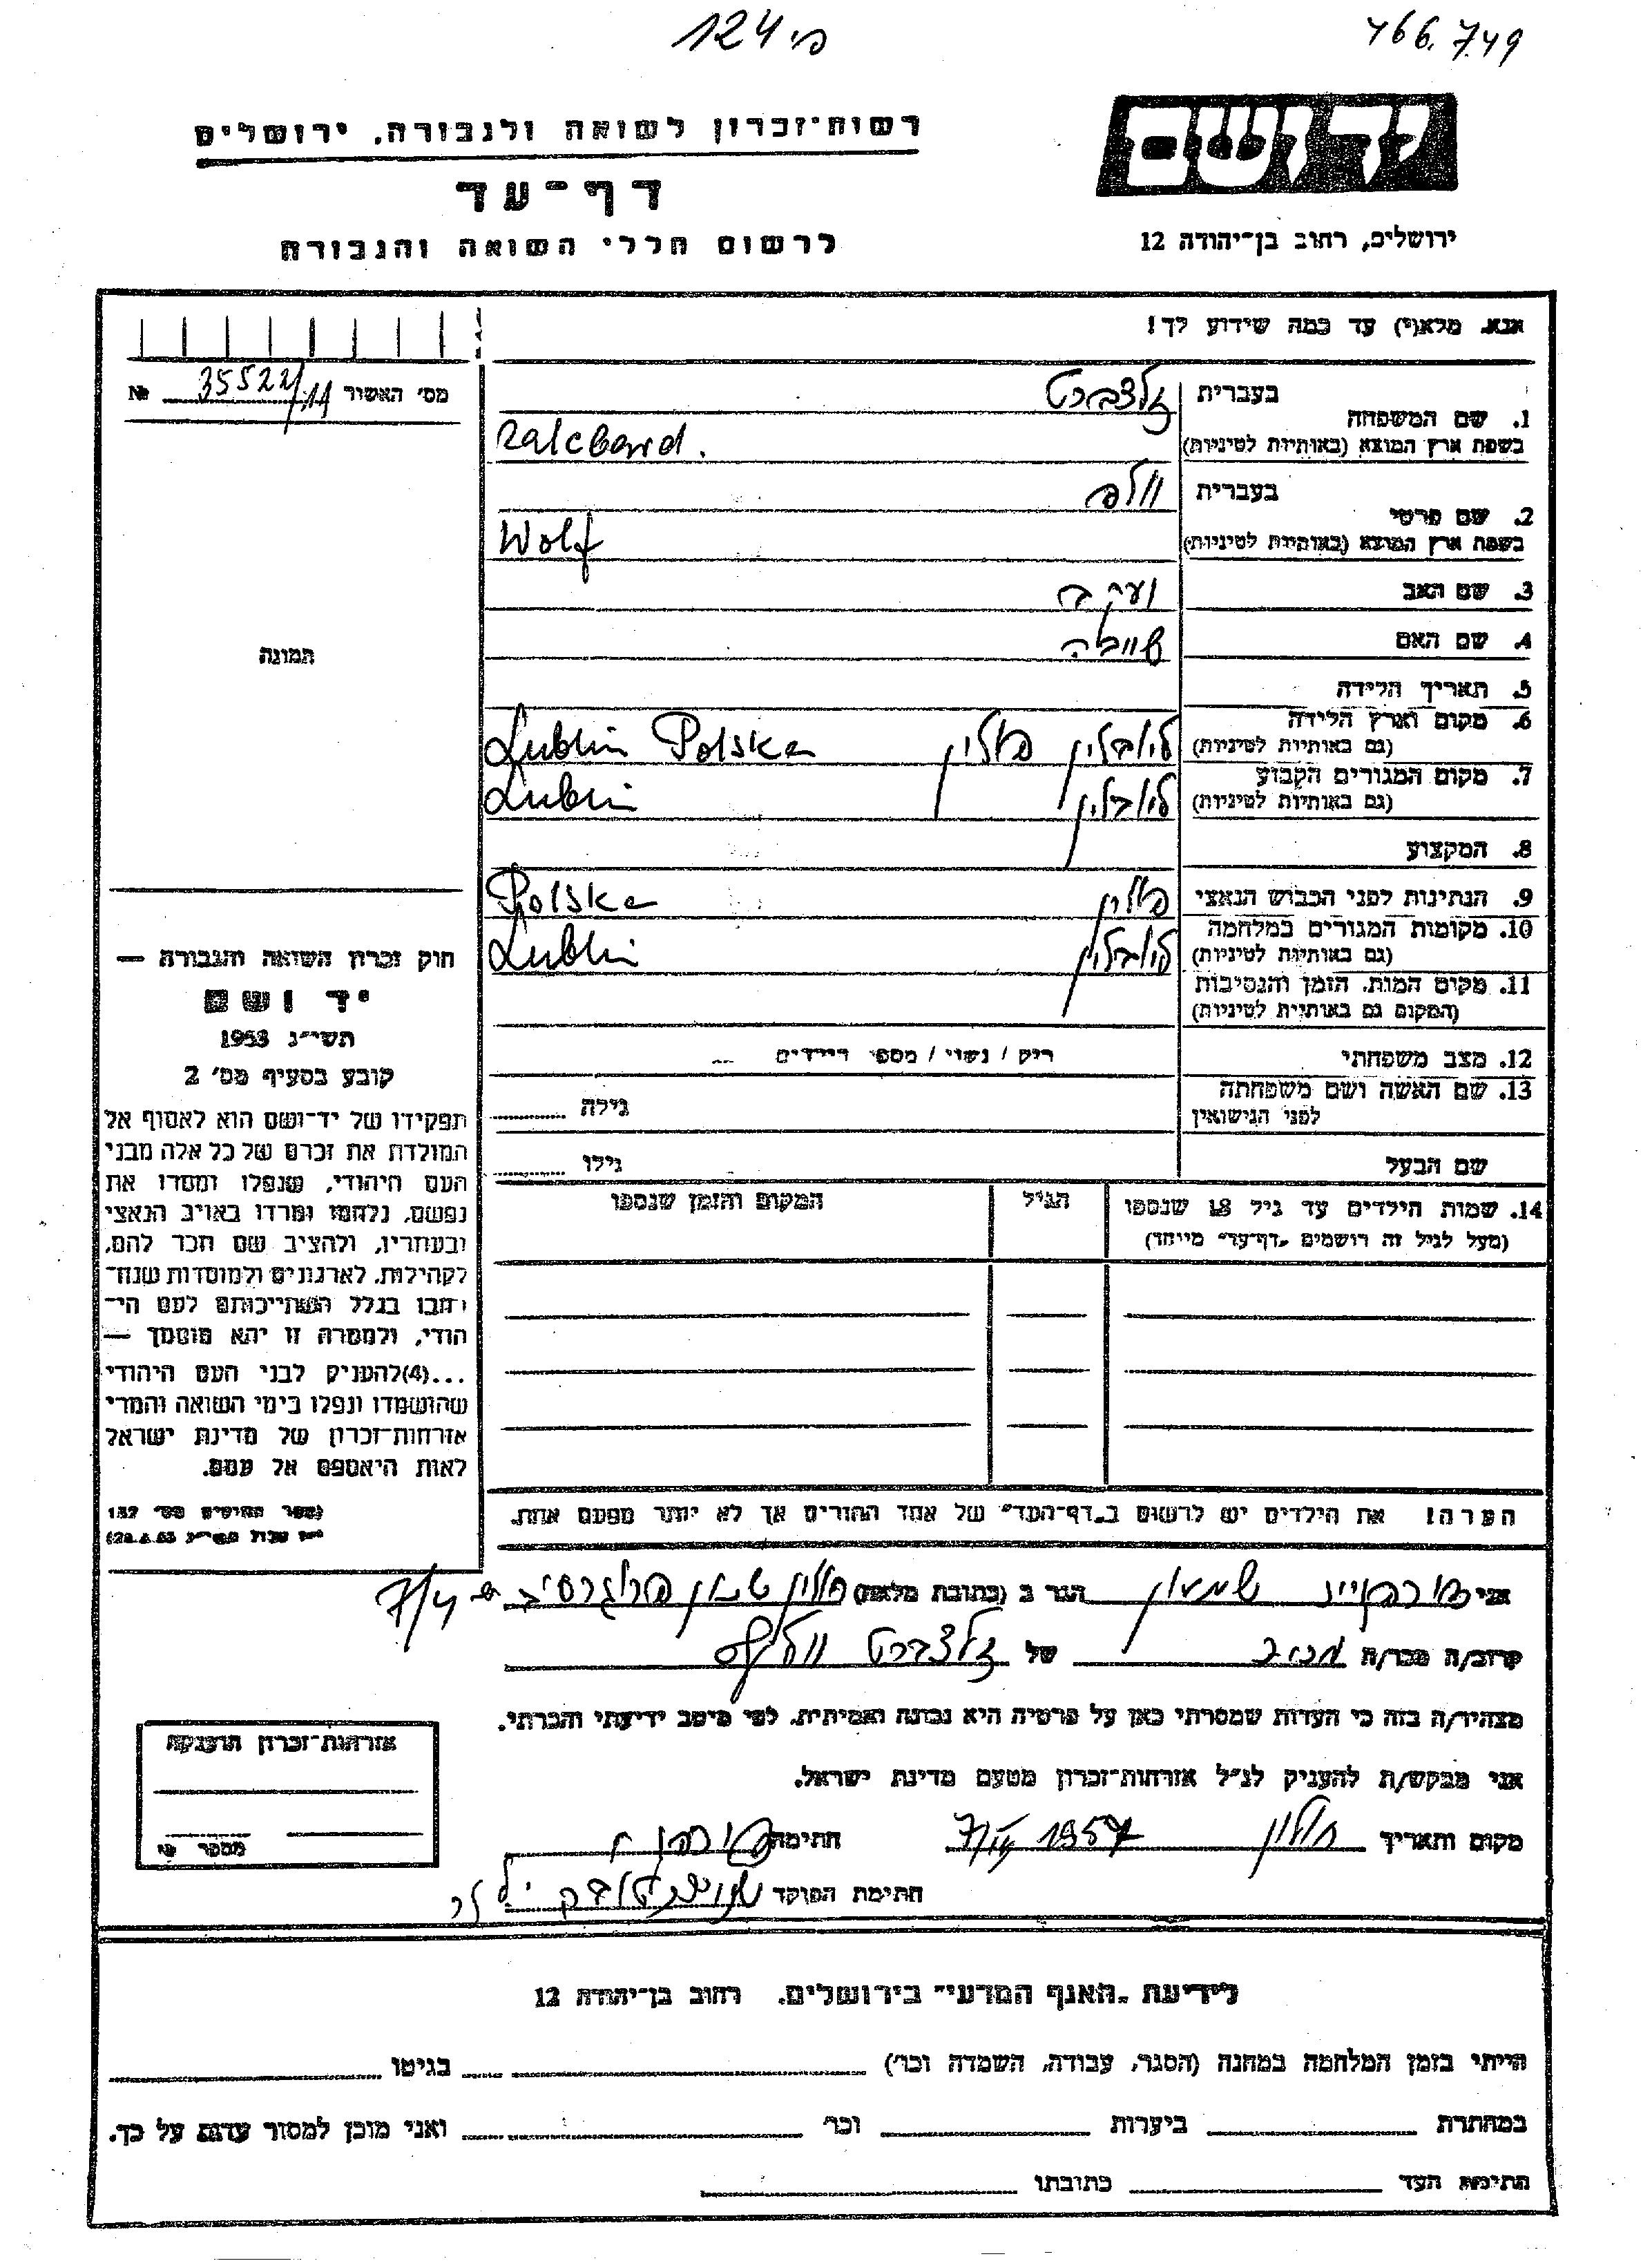 פי 124
466.749
יד ושם
רשות־זכרון לשואה ולגבורה, ירושלים
דף־עד
לרשום חללי השואה והגבורה
ירושלים, רחוב בן־יהודה 12
אנא, מלא(י) עד כמה שידוע לך!
מס׳ האשור 35522/11 №
1. שם המשפחה
בעברית זלצברט
בשפת ארץ המוצא (באותיות לטיניות) Zalcberd.
2. שם פרטי
בעברית וולף
בשפת ארץ המוצא (באותיות לטיניות) Wolf
3. שם האב יעקב
4. שם האם
5. תאריך הלידה
6. מקום וארץ הלידה לובלין פולין Lublin Polska
(גם באותיות לטיניות)
7. מקום המגורים הקבוע לובלין Lublin
(גם באותיות לטיניות)
8. המקצוע
9. הנתינות לפני הכבוש הנאצי פולין Polska
10. מקומות המגורים במלחמה לובלין Lublin
(גם באותיות לטיניות)
11. מקום המות, הזמן והנסיבות
(המקום גם באותיות לטיניות)
12. מצב משפחתי רוק / נשוי / מספר הילדים
13. שם האשה ושם משפחתה גילה
לפני הנישואין
שם הבעל גילו
14. שמות הילדים עד גיל 18 שנספו הגיל המקום והזמן שנספו
(מעל לגיל זה רושמים „דף־עד״ מייחד)
הערה! את הילדים יש לרשום ב„דף־העד״ של אחד ההורים אך לא יותר מפעם אחת.
תמונה
חוק זכרון השואה והגבורה —
יד ושם
תשי״ג 1953
קובע בסעיף מס׳ 2
תפקידו של יד־ושם הוא לאסוף אל
המולדת את זכרם של כל אלה מבני
העם היהודי, שנפלו ומסרו את
נפשם, נלחמו ומרדו באויב הנאצי
ובעוזריו, ולהציב שם וזכר להם,
לקהילות, לארגונים ולמוסדות שנח־
רבו בגלל השתייכותם לעם הי־
הודי, ולמטרה זו יהא מוסמך —
...(4)להעניק לבני העם היהודי
שהושמדו ונפלו בימי השואה והמרי
אזרחות־זכרון של מדינת ישראל
לאות היאספם אל עמם.
(ספר החוקים מס׳ 132
אני שמעון הגר ב (כתובת מלאה) חולון 7/4
קרוב/ה מכר/ה של זלצברט וולף
מצהיר/ה בזה כי העדות שמסרתי כאן על פרטיה היא נכונה ואמיתית, לפי מיטב ידיעתי והכרתי.
אני מבקש/ת להעניק לנ״ל אזרחות־זכרון מטעם מדינת ישראל.
מקום ותאריך חולון 1957 חתימה
חתימת הפוקד
אזרחות־זכרון הוענקה
מספר
לידיעת „האגף המדעי״ בירושלים, רחוב בן־יהודה 12
הייתי בזמן המלחמה במחנה (הסגר, עבודה, השמדה וכו׳) בגיטו
במחתרת ביערות וכו׳ ואני מוכן למסור עדות על כך.
חתימת העד כתובתו